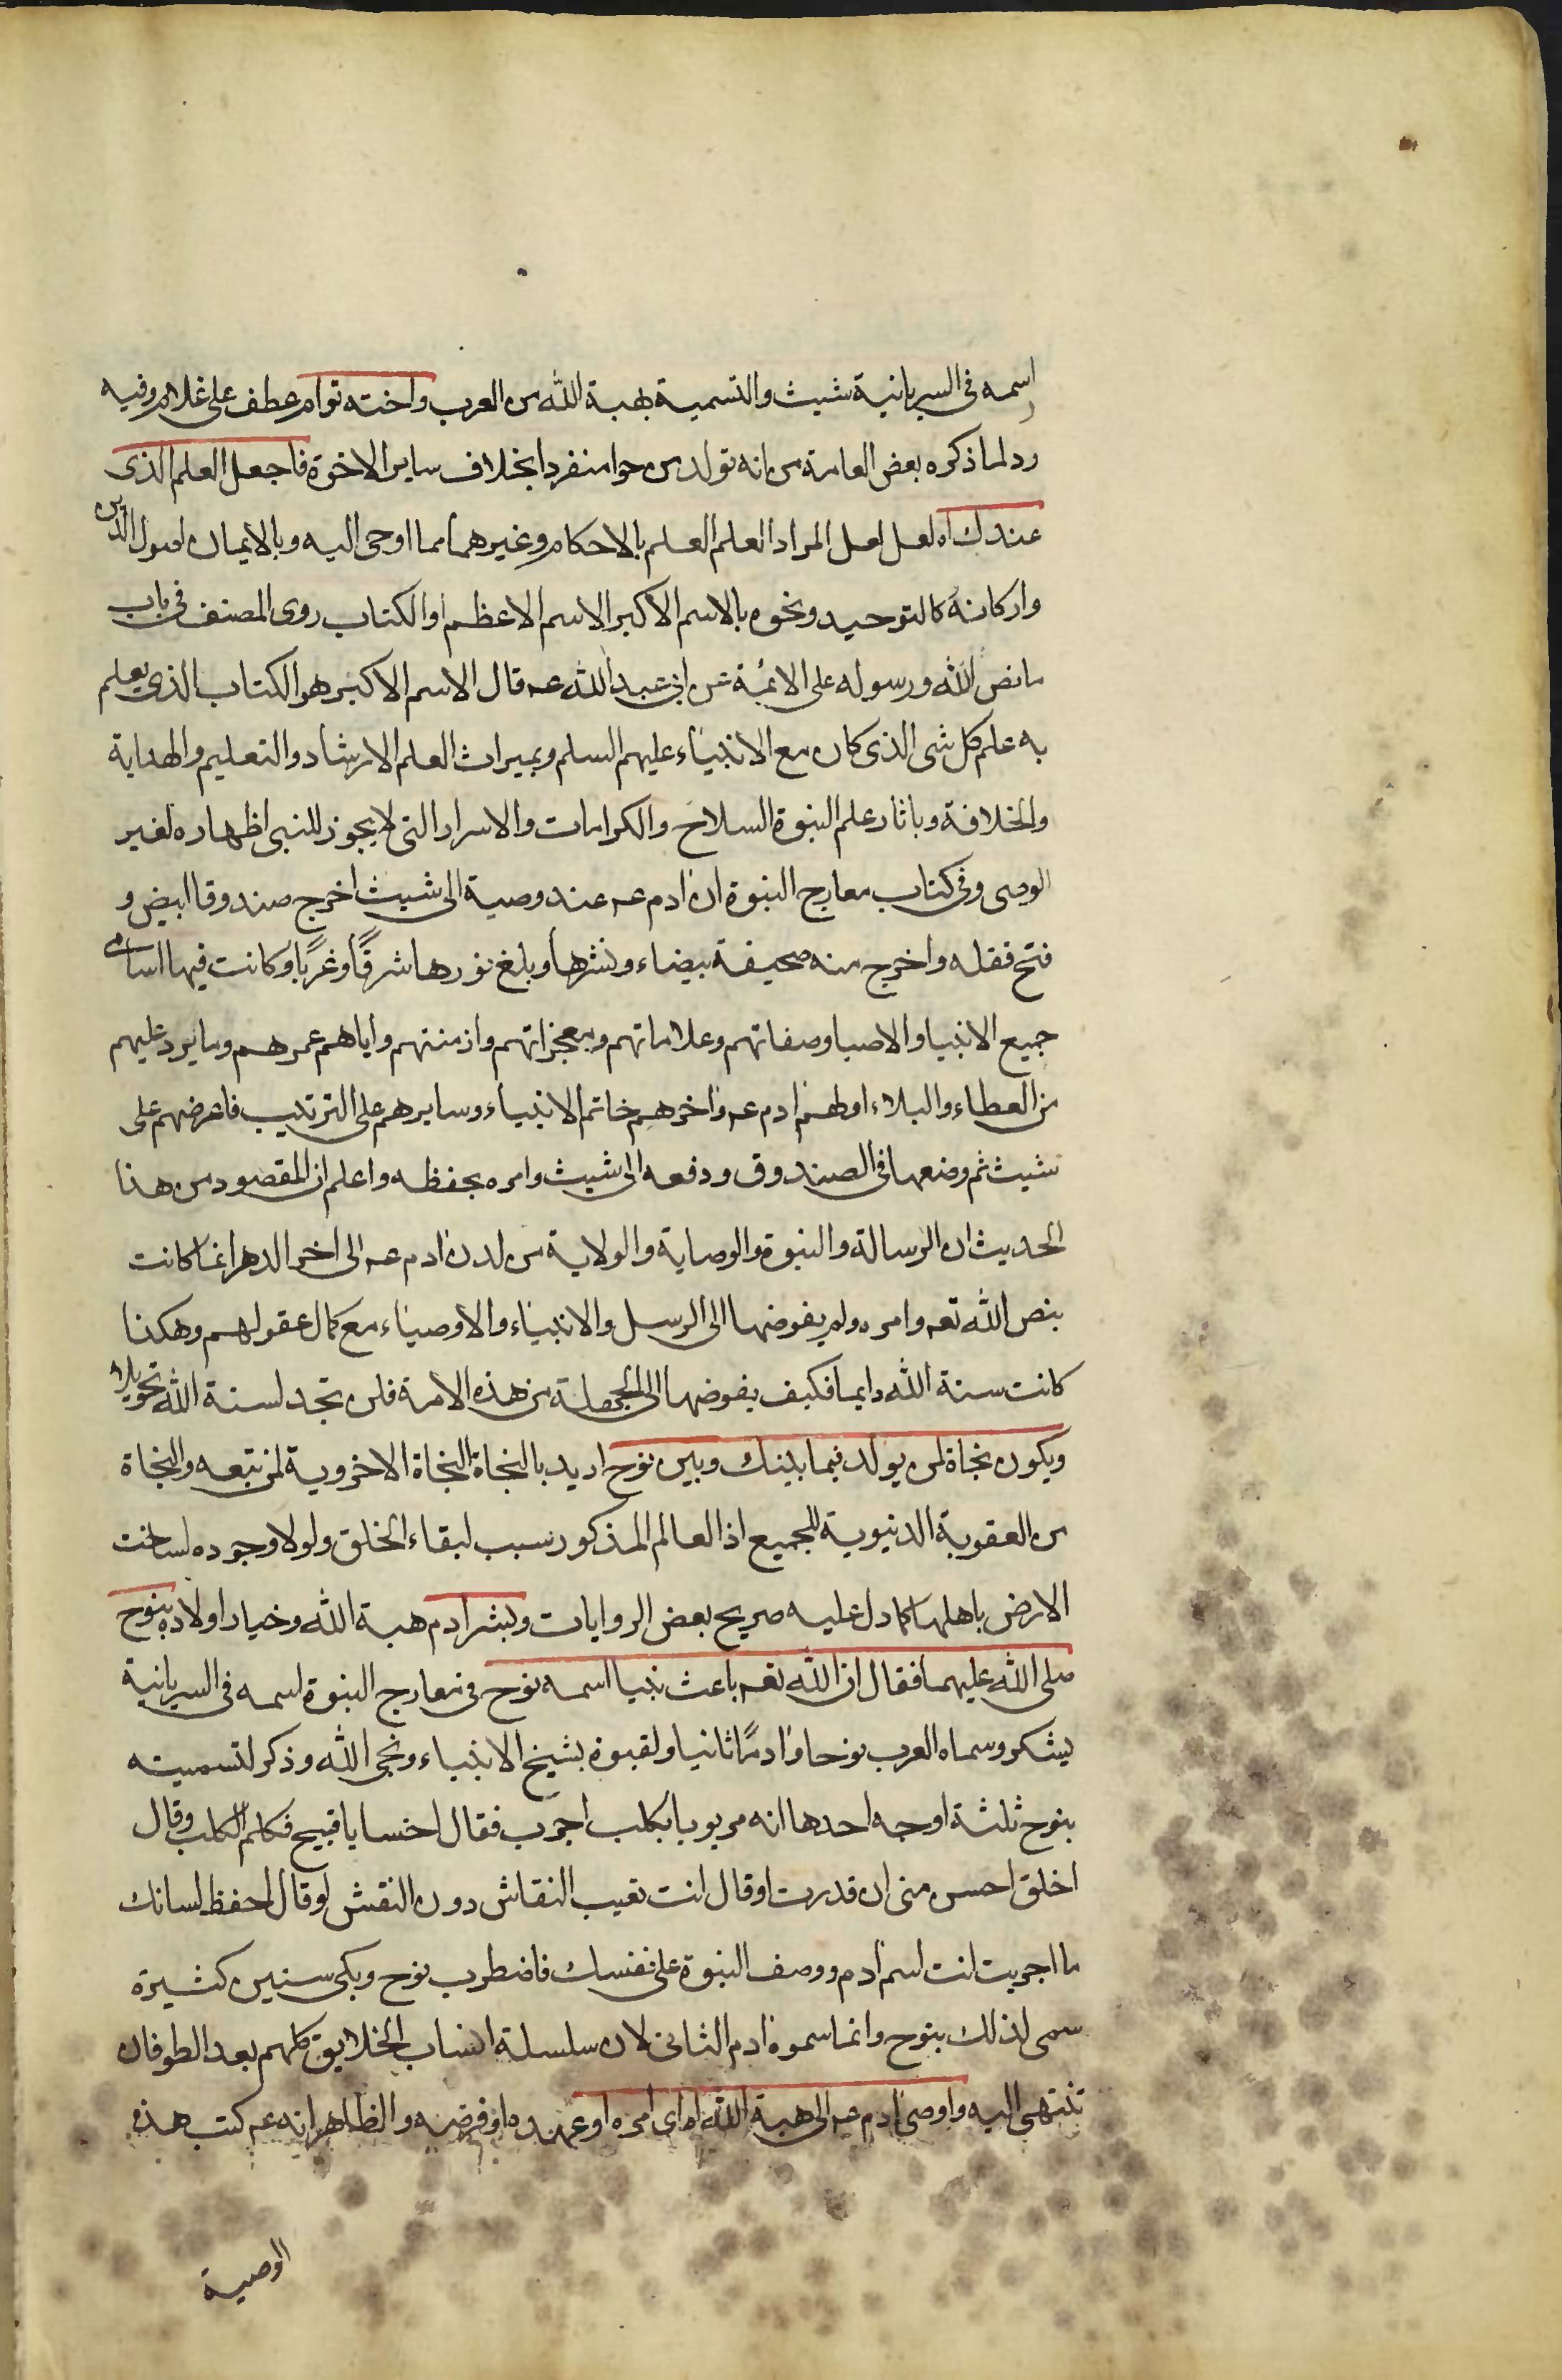 اسمه فى السريانية شيث والتسمية بهبة الله من العرب واخته توام عطف على غلام وفيه
رد لما ذكره بعض العامة من انه تولد من حوا منفردا بخلاف ساير الاخوة فاجعل العلم الذى
عندك اه لعل لعل المراد العلم العلم بالاحكام وغيرهما مما اوحى اليه وبالايمان اصول الدين
واركانه كالتوحيد ونحوه بالاسم الاكبر الاسم الاعظم او الكتاب روى المصنف فى باب
ما نص الله ورسوله على الائمة عن ابى عبد الله عه قال الاسم الاكبر هو الكتاب الذى يعلم
به علم كل شى الذى كان مع الانبياء عليهم السلم وبميراث العلم الارشاد والتعليم والهداية
والخلافة وباثار علم النبوة السلاح والكرامات والاسرار التى لا يجوز للنبى اظهاره لغير
الوصى وفى كتاب معارج النبوة ان ادم عه عند وصية الى شيث اخرج صندوقا ابيض و
فتح فقله واخرج منه صحيفة بيضاء ونشرها وبلغ نورها شرقًا وغربًا وكانت فيها اسامى
جميع الانبيا والاصيا وصفاتهم وعلاماتهم ومعجزاتهم وازمنتهم واياهم عمرهم وما يرد عليهم
من العطاء والبلاء اولهم ادم عه واخرهم خاتم الانبياء وسايرهم على الترتيب فاعرضهم على
شيث ثم وضعها فى الصندوق ودفعه الى شيث وامره بحفظه واعلم ان المقصود من هذا
الحديث ان الرسالة والنبوة والوصاية والولاية من لدن ادم عه الى اخر الدهر انما كانت
بنص الله تعه وامره ولم يفوضها الى الرسل والانبياء والاوصياء مع كمال عقولهم وهكذا
كانت سنة الله دايما فكيف يفوضها الى الجهلة من هذه الامة فلن تجد لسنة الله تحويلا
ويكون نجاة لمن يولد فيما بينك وبين نوح اريد بالنجاة النجاة الاخروية لمن تبعه والنجاة
من العقوبة الدنيوية للجميع اذ العالم المذكور سبب لبقاء الخلق ولولا وجوده لساخت
الارض باهلها كما دل عليه صريح بعض الروايات وبشر ادم هبة الله وخيار اولاده بنوح
صلى الله عليهما فقال ان الله تعه باعث نبيا اسمه نوح فى معارج النبوة اسمه فى السريانية
يشكر وسماه العرب نوحا وادمًا ثانيا ولقبوه بشيخ الانبياء ونجى الله وذكر لتسميته
بنوح ثلثة اوجه احدها انه مر يوما بكلب اجرب فقال اخسا يا قبيح فكلم الكلب وقال
اخلق احسن منى ان قدرت او قال انت تعيب النقاش دون النقش او قال احفظ لسانك
ما اجريت انت اسم ادم ووصف النبوة على نفسك فاضطرب نوح وبكى سنين كثيرة
سمى لذلك بنوح وانما سموه ادم الثانى لان سلسلة انساب الخلايق كلهم بعد الطوفان
تنتهى اليه واوصى ادم عه الى هبة الله اه اى امره او عهده او فرضه والظاهر انه عه كتب هذه
الوصية